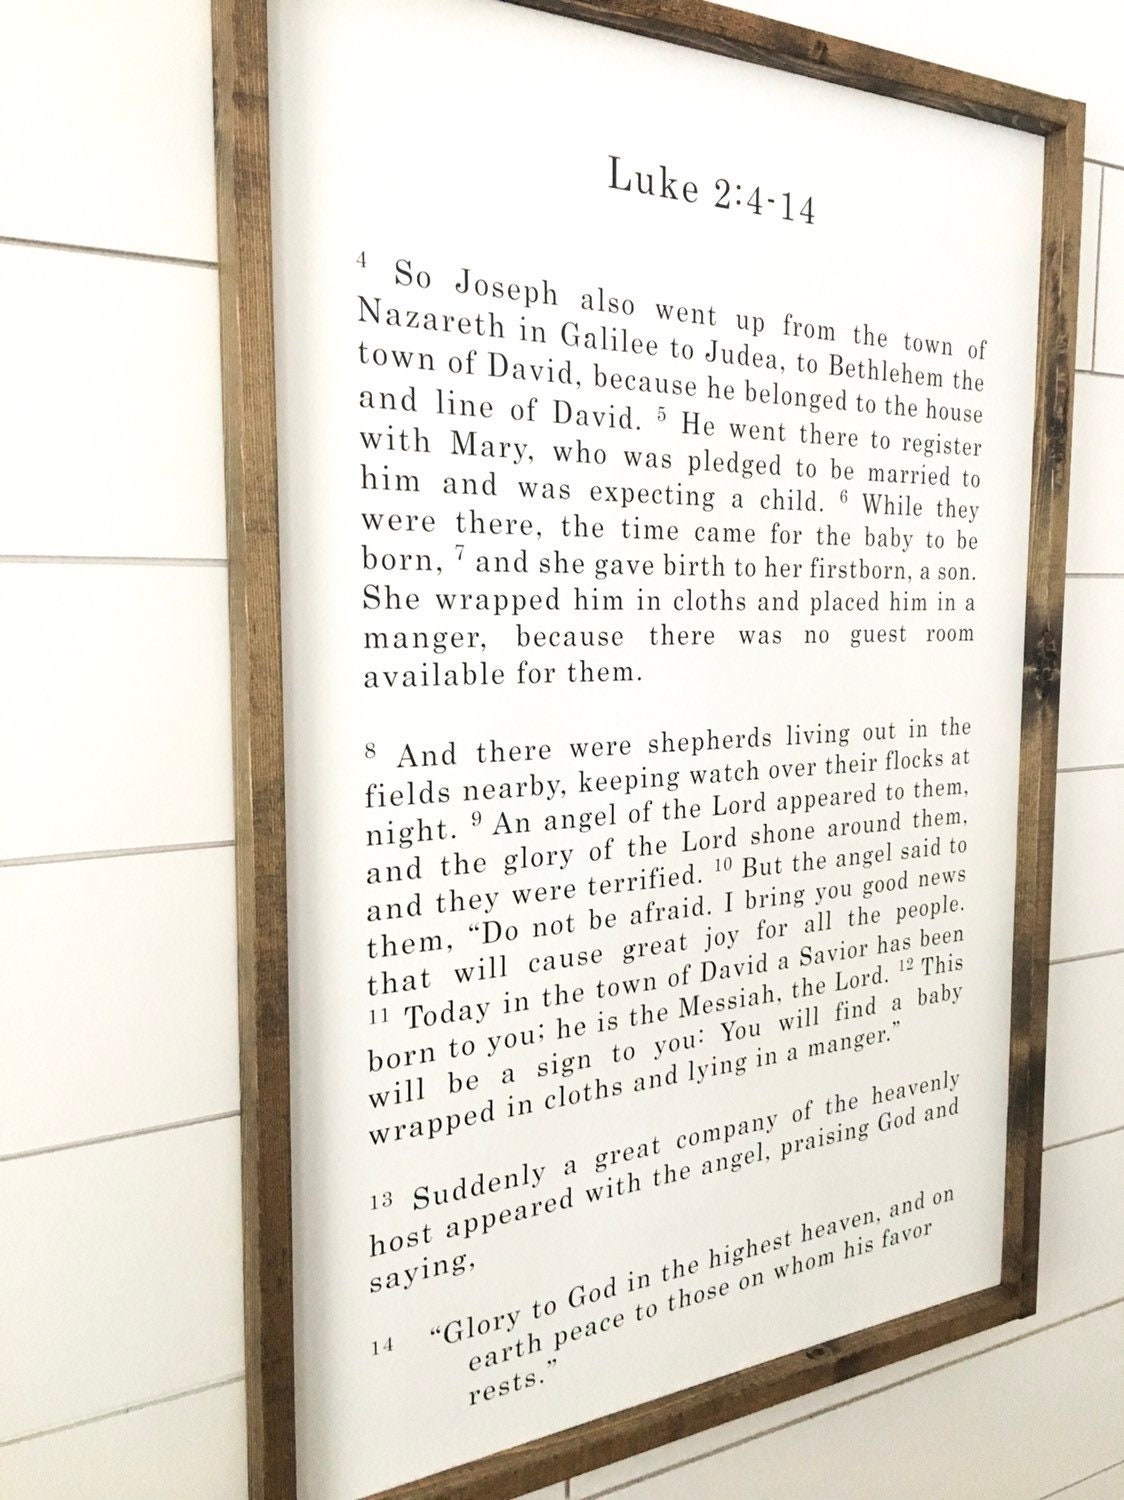 Luke 2:4-14
4 So Joseph also went up from the town of
Nazareth in Galilee to Judea, to Bethlehem the
town of David, because he belonged to the house
and line of David. 5 He went there to register
with Mary, who was pledged to be married to
him and was expecting a child. 6 While they
were there, the time came for the baby to be
born, 7 and she gave birth to her firstborn, a son.
She wrapped him in cloths and placed him in a
manger, because there was no guest room
available for them.
8 And there were shepherds living out in the
fields nearby, keeping watch over their flocks at
night. 9 An angel of the Lord appeared to them,
and the glory of the Lord shone around them,
and they were terrified. 10 But the angel said to
them, “Do not be afraid. I bring you good news
that will cause great joy for all the people.
11 Today in the town of David a Savior has been
born to you; he is the Messiah, the Lord. 12 This
will be a sign to you: You will find a baby
wrapped in cloths and lying in a manger.”
13 Suddenly a great company of the heavenly
host appeared with the angel, praising God and
saying,
14 “Glory to God in the highest heaven, and on
earth peace to those on whom his favor
rests.”